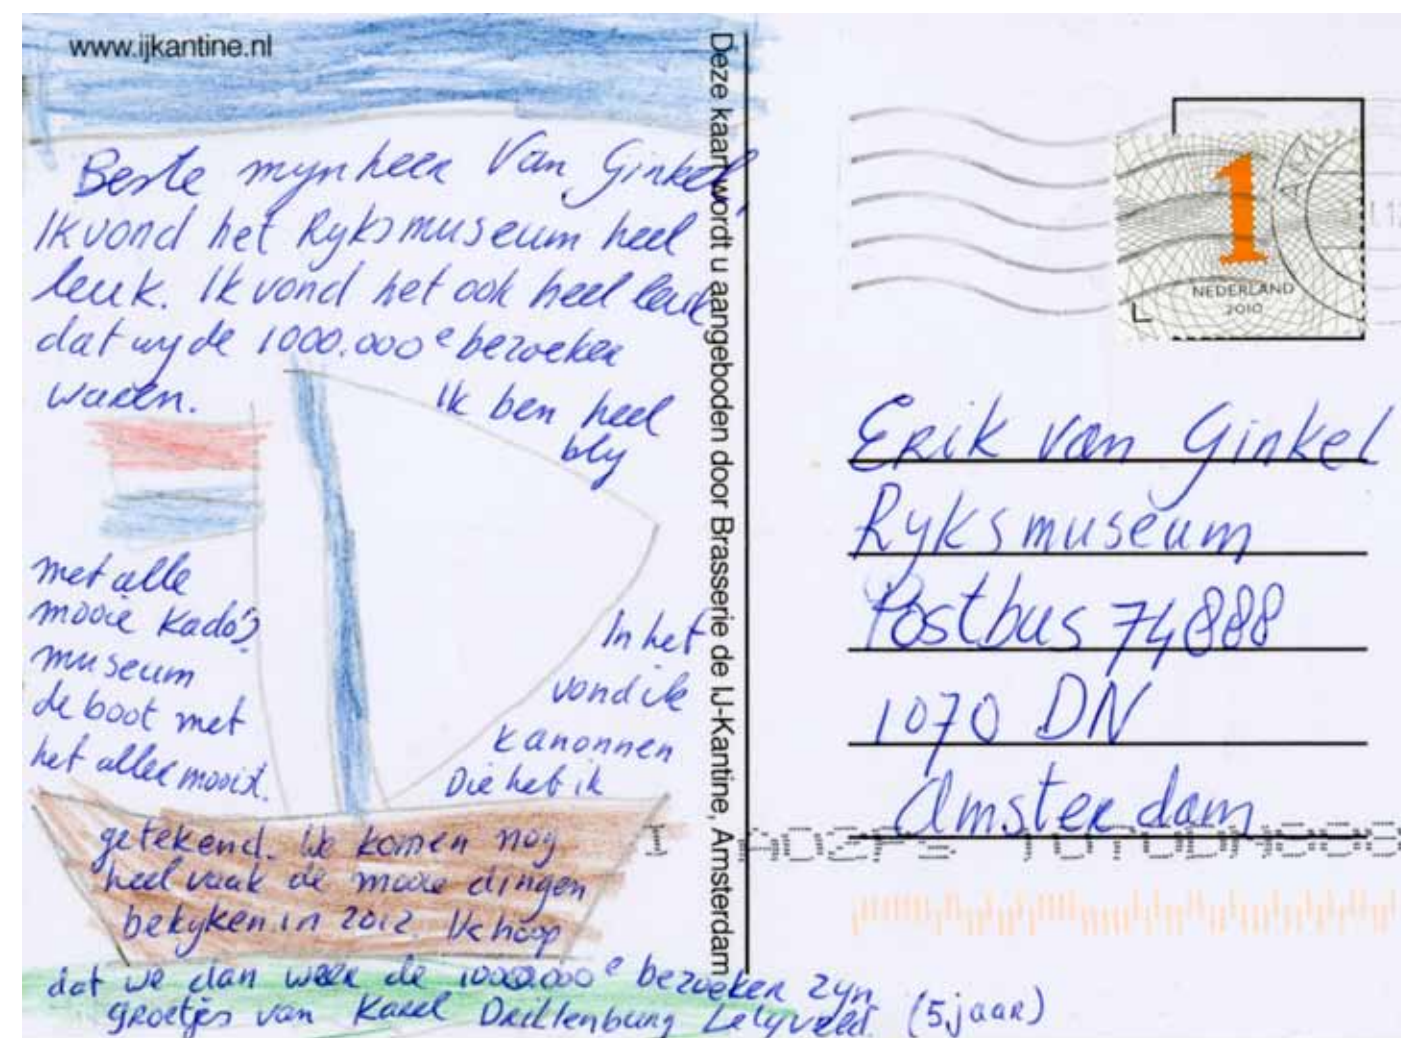 www.ijkantine.nl
Beste mynheer Van Ginkel,
Ik vond het Ryksmuseum heel
leuk. Ik vond het ook heel leuk
dat wy de 1000.000e bezoeker
waren.
Ik ben heel
bly
met alle
mooie kado's.
In het
museum
vond ik
de boot met
kanonnen
het aller mooist.
Die heb ik
getekend. We komen nog
heel vaak de mooie dingen
bekyken in 2012. Ik hoop
dat we dan weer de 1000.000e bezoeker zyn
groetjes van Karel Drillenburg Lelyveld. (5 jaar)
Deze kaart wordt u aangeboden door Brasserie de IJ-Kantine, Amsterdam
1
NEDERLAND
2010
Erik van Ginkel
Ryksmuseum
Postbus 74888
1070 DN
Amsterdam